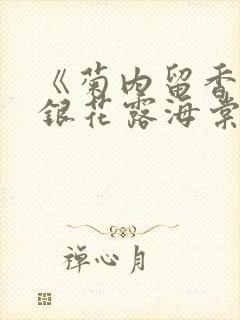 《菊内留香
銀花露海棠
禅心月